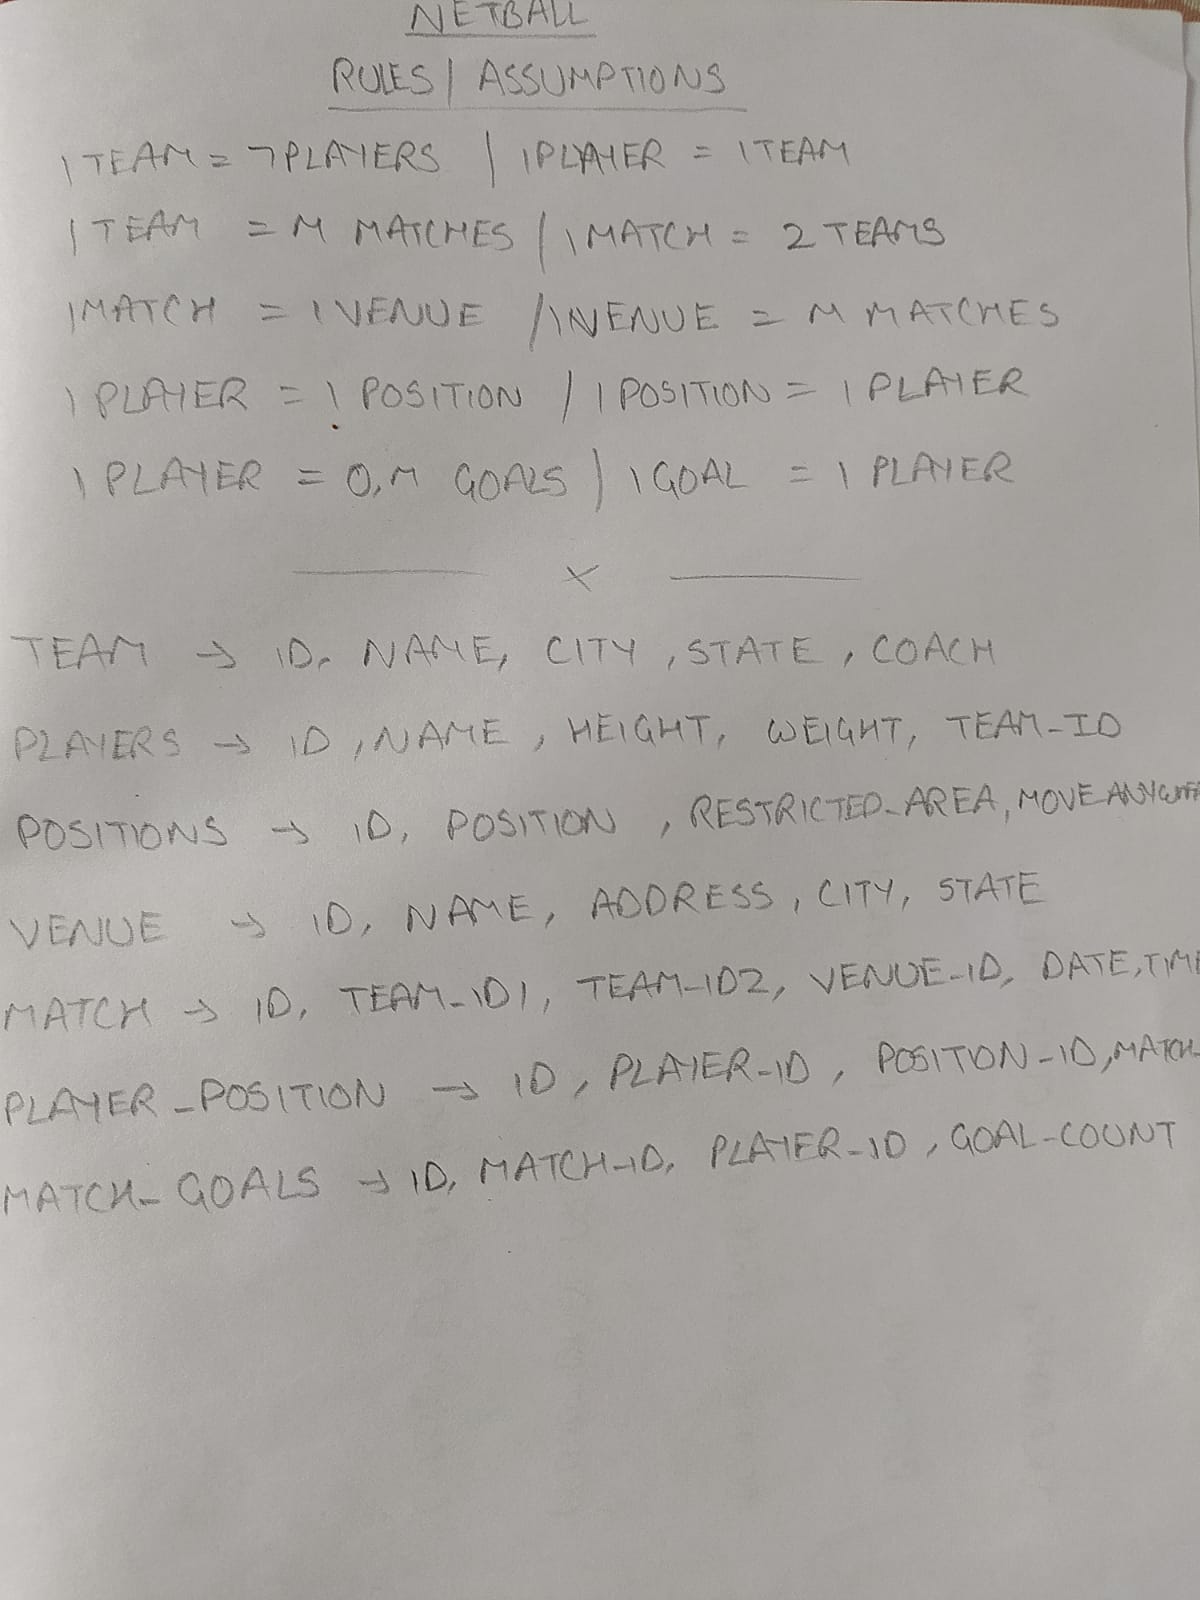 NETBALL
RULES | ASSUMPTIONS
1 TEAM = 7 PLAYERS | 1 PLAYER = 1 TEAM
1 TEAM = M MATCHES / 1 MATCH = 2 TEAMS
1 MATCH = 1 VENUE / 1 VENUE = M MATCHES
1 PLAYER = 1 POSITION / 1 POSITION = 1 PLAYER
1 PLAYER = 0,M GOALS | 1 GOAL = 1 PLAYER
X
TEAM → ID, NAME, CITY, STATE, COACH
PLAYERS → ID, NAME, HEIGHT, WEIGHT, TEAM-ID
POSITIONS → ID, POSITION, RESTRICTED-AREA, MOVE
VENUE → ID, NAME, ADDRESS, CITY, STATE
MATCH → ID, TEAM-ID1, TEAM-ID2, VENUE-ID, DATE, TIME
PLAYER-POSITION → ID, PLAYER-ID, POSITION-ID, MATCH-
MATCH-GOALS → ID, MATCH-ID, PLAYER-ID, GOAL-COUNT